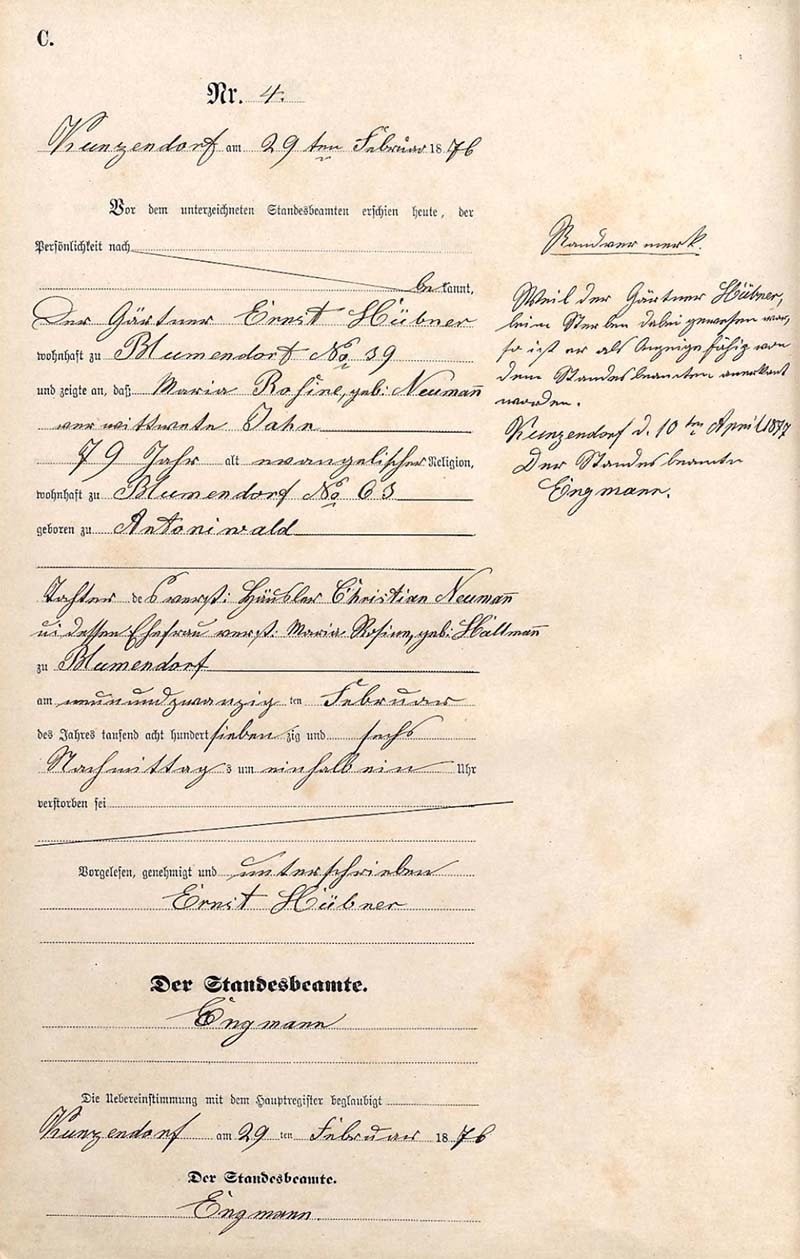 C.
Nr. 4.
Kunzendorf am 29 ten Februar 1876
Vor dem unterzeichneten Standesbeamten erschien heute, der
Persönlichkeit nach
bekannt,
Der Gärtner Ernst Hübner
wohnhaft zu Blumendorf No 39
und zeigte an, daß Maria Rosine, geb: Neumann
verwittwete Jahn
79 Jahr alt evangelischer Religion,
wohnhaft zu Blumendorf No 63
geboren zu Antoniwald
Tochter des verst: Häusler Christian Neumann
u: dessen Ehefrau verst: Maria Rosine, geb: Hallmann
zu Blumendorf
am neunundzwanzig ten Februar
des Jahres tausend acht hundert sieben zig und sechs
Nachmittag s um einhalb ein Uhr
verstorben sei
Vorgelesen, genehmigt und unterschrieben
Ernst Hübner
Der Standesbeamte.
Engmann
Die Uebereinstimmung mit dem Hauptregister beglaubigt
Kunzendorf am 29 ten Februar 1876
Der Standesbeamte.
Engmann.
Randvermerk.
Weil der Gärtner Hübner,
beim Sterben dabei gewesen war,
so ist er als Anzeigefähig von
dem Standesbeamten anerkant
worden.
Kunzendorf d. 10 ten April 1877
Der Standesbeamte
Engmann.